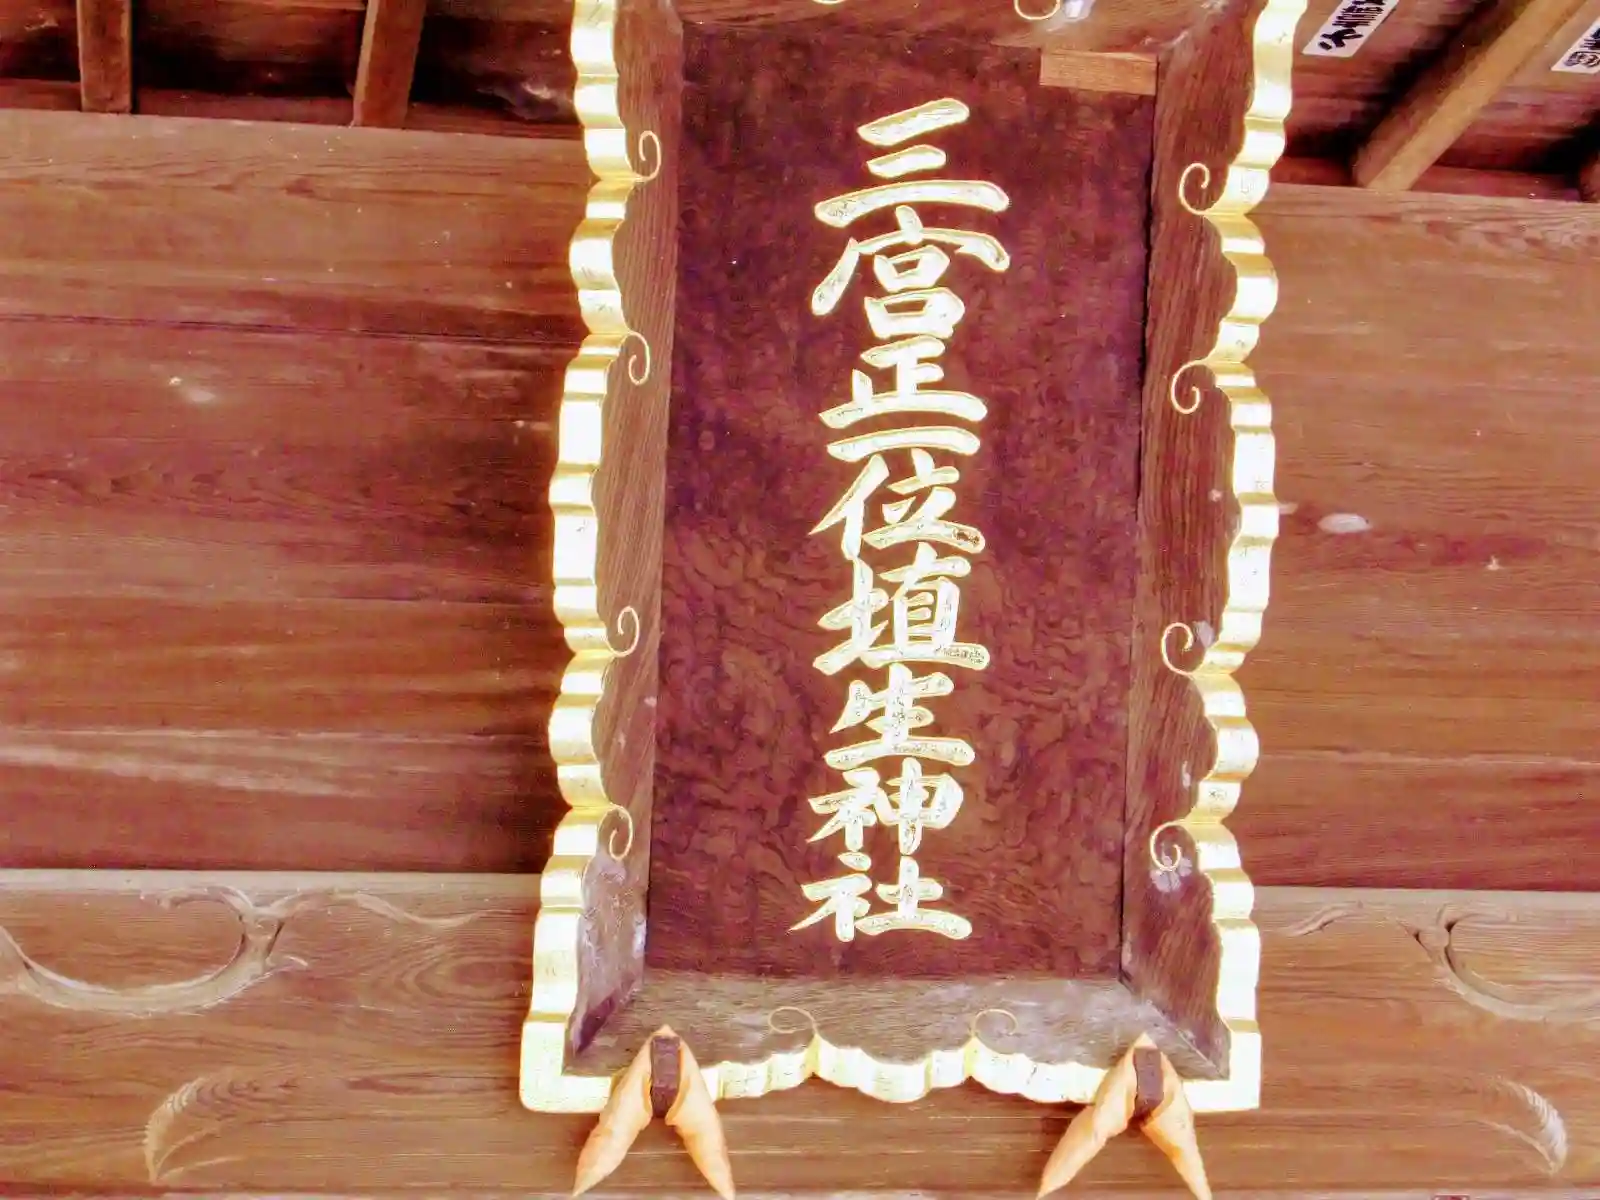 三宮正一位埴生神社